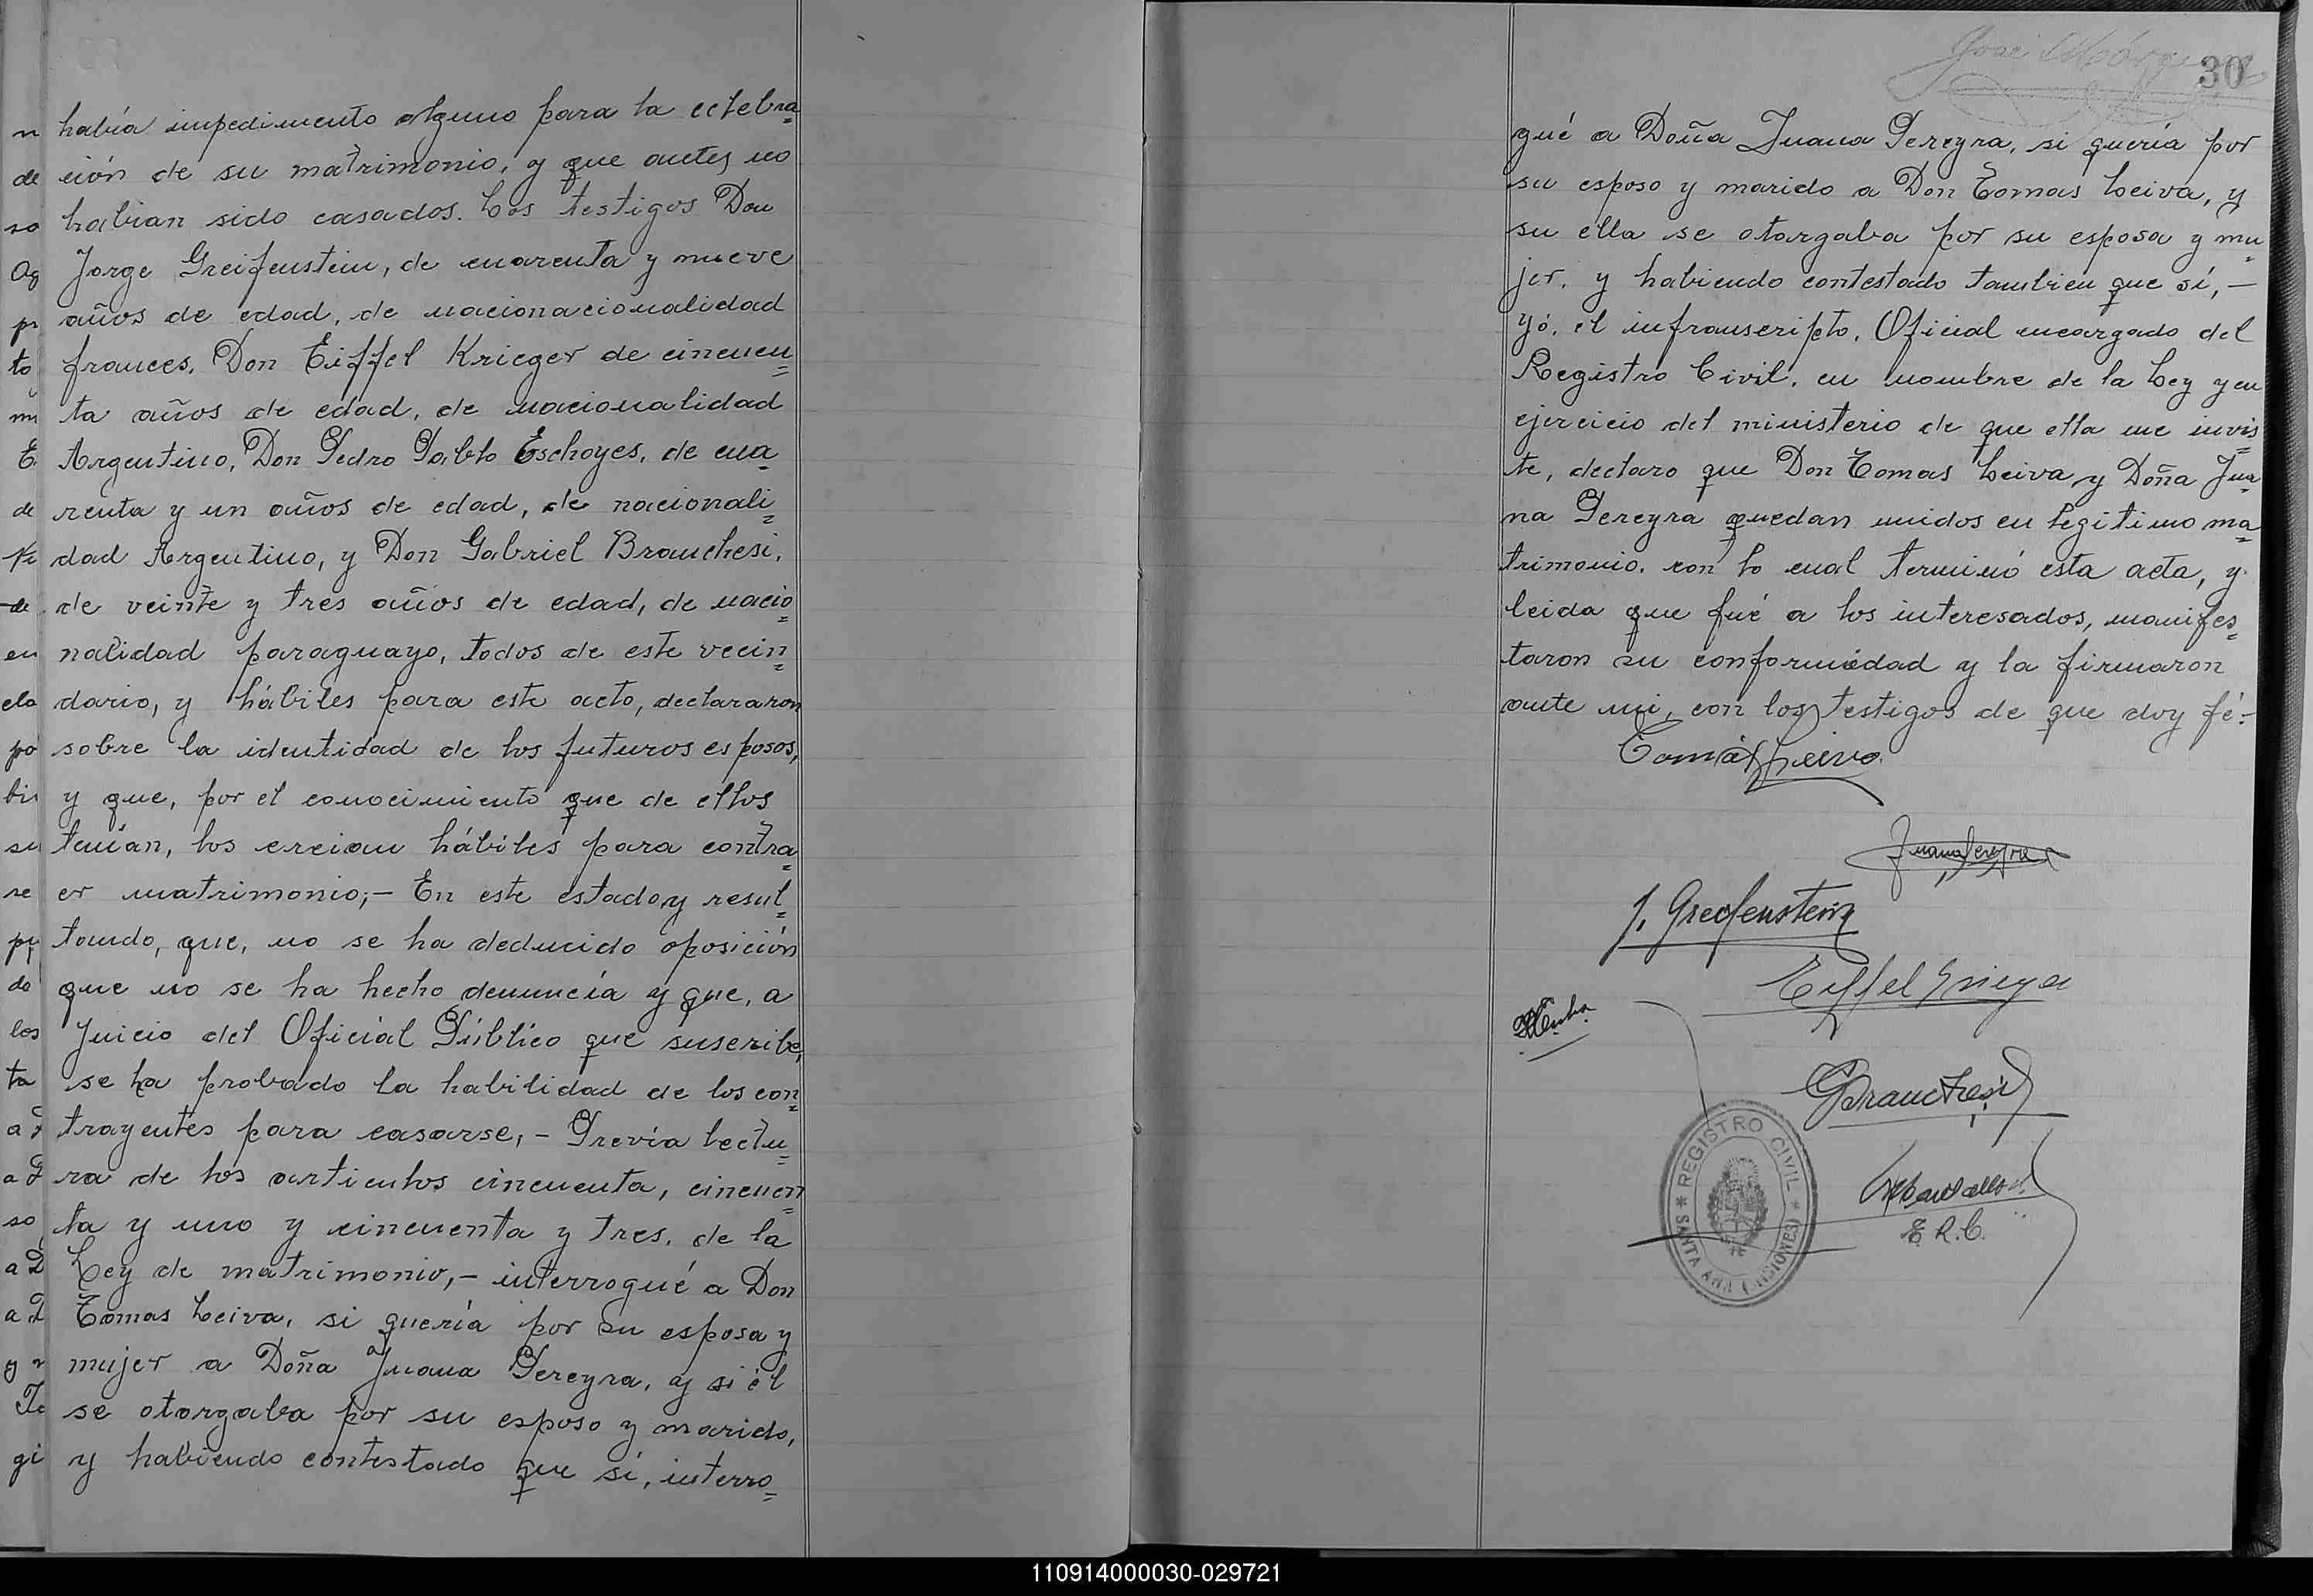 había impedimento alguno para la celebra=
ción de su matrimonio, y que antes no
habian sido casados. Los testigos Don
Jorge Greifenstein, de cuarenta y nueve
años de edad, de nacionacionalidad
frances. Don Eiffel Krieger de cincuen=
ta años de edad, de nacionalidad
Argentino, Don Pedro Pablo Eschoyes, de cua=
renta y un años de edad, de nacionali=
dad Argentino, y Don Gabriel Branchesi,
de veinte y tres años de edad, de nacio=
nalidad paraguayo, todos de este vecin=
dario, y hábiles para este acto, declararon
sobre la identidad de los futuros esposos,
y que, por el conocimiento que de ellos
tenían, los creian hábiles para contra=
er matrimonio;- En este estado y resul=
tando, que, no se ha deducido oposición
que no se ha hecho denuncia y que, a
Juicio del Oficial Público que suscribe,
se ha probado la habilidad de los con=
trayentes para casarse,- Previa lectu=
ra de los articulos cincuenta, cincuen=
ta y uno y cincuenta y tres, de la
Ley de matrimonio,- interrogué a Don
Tomas Leiva, si quería por su esposa y
mujer a Doña Juana Pereyra, y si él
se otorgaba por su esposo y marido,
y habiendo contestado que sí, interro=
30
gué a Doña Juana Pereyra, si quería por
su esposo y marido a Don Tomas Leiva, y
su ella se otorgaba por su esposa y mu=
jer, y habiendo contestado tambien que sí,-
yó, el infranscripto, Oficial encargado del
Registro Civil, en nombre de la Ley y en
ejercicio del ministerio de que ella me invis=
te, declaro que Don Tomas Leiva y Doña Jua=
na Pereyra quedan unidos en legitimo ma=
trimonio. con lo cual terminó esta acta, y
leida que fué a los interesados, manifes=
taron su conformidad y la firmaron
ante mi, con los testigos de que doy fé:-
Tomás Leiva
Juana Pereyra
J. Greifenstein
Eiffel Krieger
GBranchesi
REGISTRO CIVIL
SANTA ANA (MISIONES)
E. R. C.
110914000030-029721